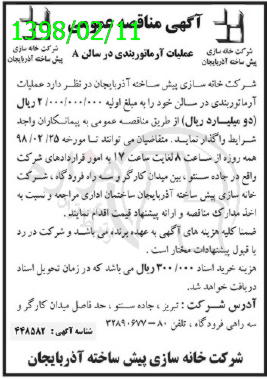 1398/02/11
آگهی مناقصه عمومی
عملیات آرماتوربندی در سالن A
شرکت خانه سازی
پیش ساخته آذربایجان
شرکت خانه سازی
پیش ساخته آذربایجان
شرکت خانه سازی پیش ساخته آذربایجان در نظر دارد عملیات
آرماتوربندی در سالن خود را به مبلغ اولیه ۲/۰۰۰/۰۰۰/۰۰۰ ریال
(دو میلیارد ریال) از طریق مناقصه عمومی به پیمانکاران واجد
شرایط واگذار نماید. متقاضیان می توانند تا مورخه ۹۸/۰۲/۲۵
همه روزه از ساعت ۸ لغایت ساعت ۱۷ به امور قراردادهای شرکت
واقع در جاده سنتو، بین میدان کارگر و سه راه فرودگاه، شرکت
خانه سازی پیش ساخته آذربایجان ساختمان اداری مراجعه و نسبت به
اخذ مدارک مناقصه و ارائه پیشنهاد قیمت اقدام نمایند.
ضمنا کلیه هزینه های آگهی به عهده برنده، می باشد و شرکت در رد
یا قبول پیشنهادات مختار است.
هزینه خرید اسناد ۳۰۰/۰۰۰ ریال می باشد که در زمان تحویل اسناد
دریافت خواهد شد.
آدرس شرکت: تبریز، جاده سنتو، حد فاصل میدان کارگر و
سه راهی فرودگاه، تلفن ۸۰-۳۲۸۹۰۶۷۷
شناسه آگهی: ۴۴۸۵۸۲
شرکت خانه سازی پیش ساخته آذربایجان